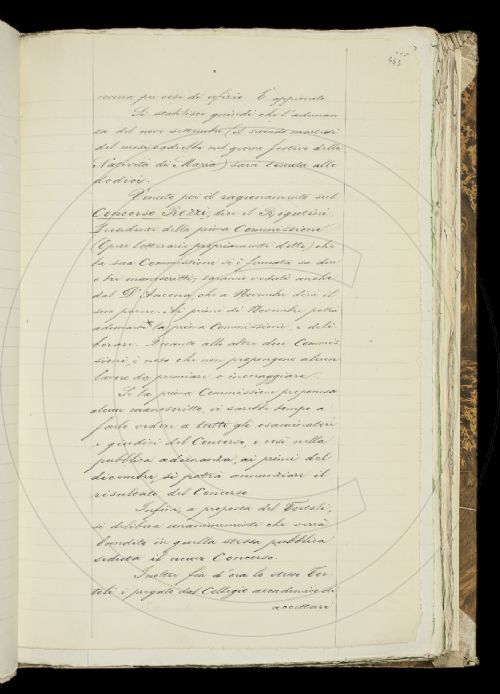 443
vocena per cose di ufizio. È approvata.
Si stabilisce quindi che l'adunan-
za del nove settembre (il secondo martedì
del mese cadrebbe nel giorno festivo della
Natività di Maria) sarà tenuta alle
dodici.
Venuto poi il ragionamento sul
Concorso Rezzi, dice il Rigutini,
Presidente della prima Commissione
(Opere letterarie propriamente dette) che
la sua Commissione si è fermata su due
o tre manoscritti; saranno veduti anche
dal D'Ancona, che a Novembre dirà il
suo parere. Ai primi di Novembre potrà
adunarsi la prima Commissione e deli-
berare. Quanto alle altre due Commis-
sioni, è noto che non propongono alcun
lavoro da premiare o incoraggiare.
Se la prima Commissione proponesse
alcun manoscritto, vi sarebbe tempo a
farlo vedere a tutti gli esaminatori
e giudici del Concorso, e così nella
pubblica adunanza, ai primi del
dicembre, si potrà annunziare il
risultato del Concorso.
Infine, a proposta del Tortoli,
si delibera unanimemente che verrà
bandito in quella stessa pubblica
seduta il nuovo Concorso.
Inoltre fin d'ora lo stesso Tor-
toli è pregato dal Collegio accademico di
accettare